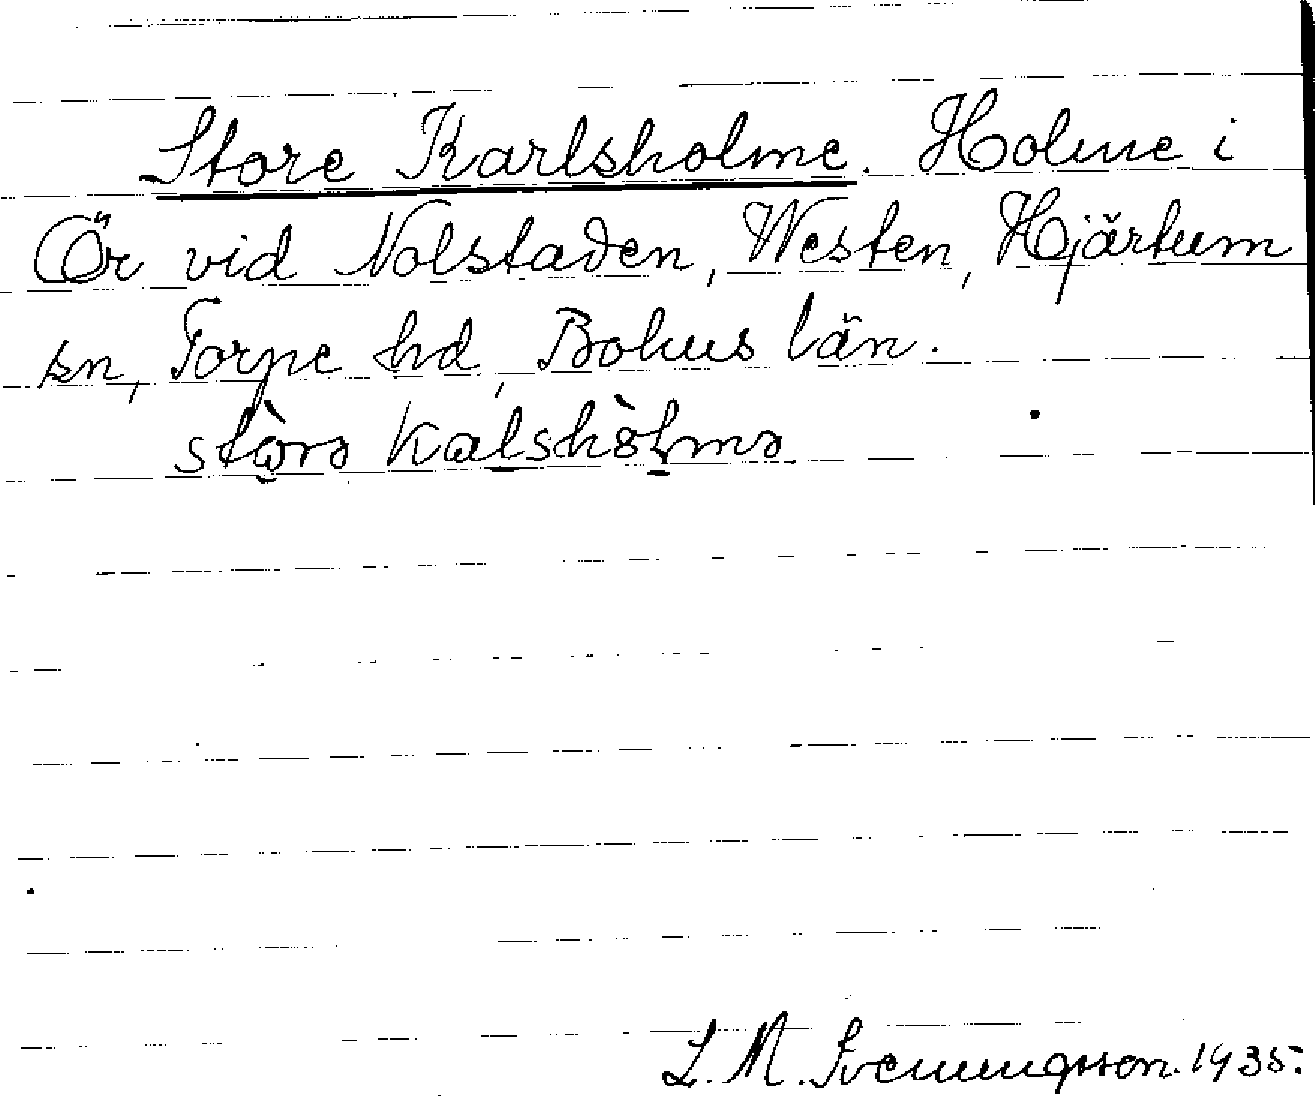 Store Karlsholme. Holme i
Ör vid Nolstaden, Westen, Hjärtum
sn, Torpe hd, Bohus län.
stòrə kalshòlmə
L. M. Svenungsson. 1935.